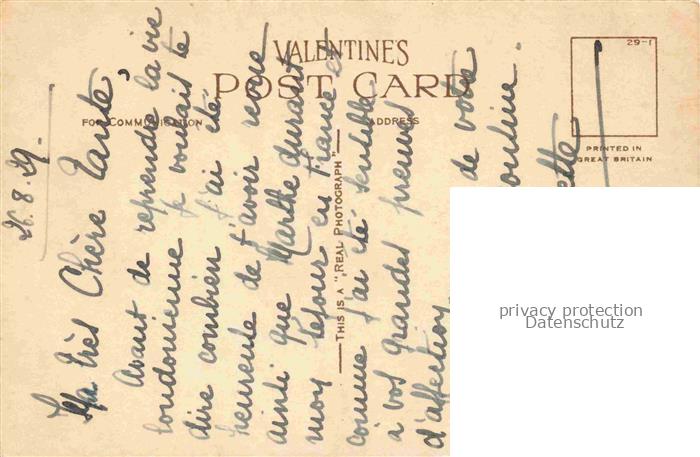 VALENTINE'S
POST CARD
FOR COMMUNICATION
ADDRESS
29-1
PRINTED IN
GREAT BRITAIN
THIS IS A "REAL PHOTOGRAPH"
26.8.29.
Ma très Chère Tante,
Avant de reprendre la vie
londonienne je voulais te
dire combien j'ai été
heureuse de t'avoir revue
ainsi que Marthe durant
mon séjour en France et
comme j'ai été sensible
à vos grandes preuves
d'affection.
de votre
privacy protection
Datenschutz